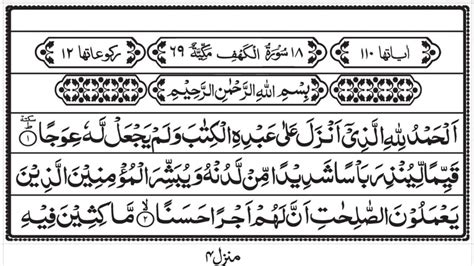 اٰیاتها ۱۱۰ ۱۸ سُوْرَةُ الْكَهْفِ مَكِّیَّةٌ ۶۹ ركوعاتها ۱۲
بِسْمِ اللّٰهِ الرَّحْمٰنِ الرَّحِیْمِ
اَلْحَمْدُ لِلّٰهِ الَّذِیْۤ اَنْزَلَ عَلٰی عَبْدِهِ الْكِتٰبَ وَ لَمْ یَجْعَلْ لَّهٗ عِوَجًا ؕ سكتة ۱
قَیِّمًا لِّیُنْذِرَ بَاْسًا شَدِیْدًا مِّنْ لَّدُنْهُ وَ یُبَشِّرَ الْمُؤْمِنِیْنَ الَّذِیْنَ
یَعْمَلُوْنَ الصّٰلِحٰتِ اَنَّ لَهُمْ اَجْرًا حَسَنًا ۙ ۲ مَّاكِثِیْنَ فِیْهِ
منزل ۴